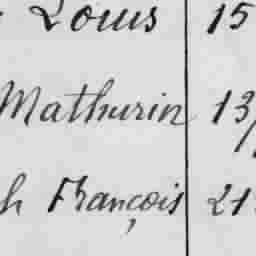 Louis 15
Mathurin 13
h François 21